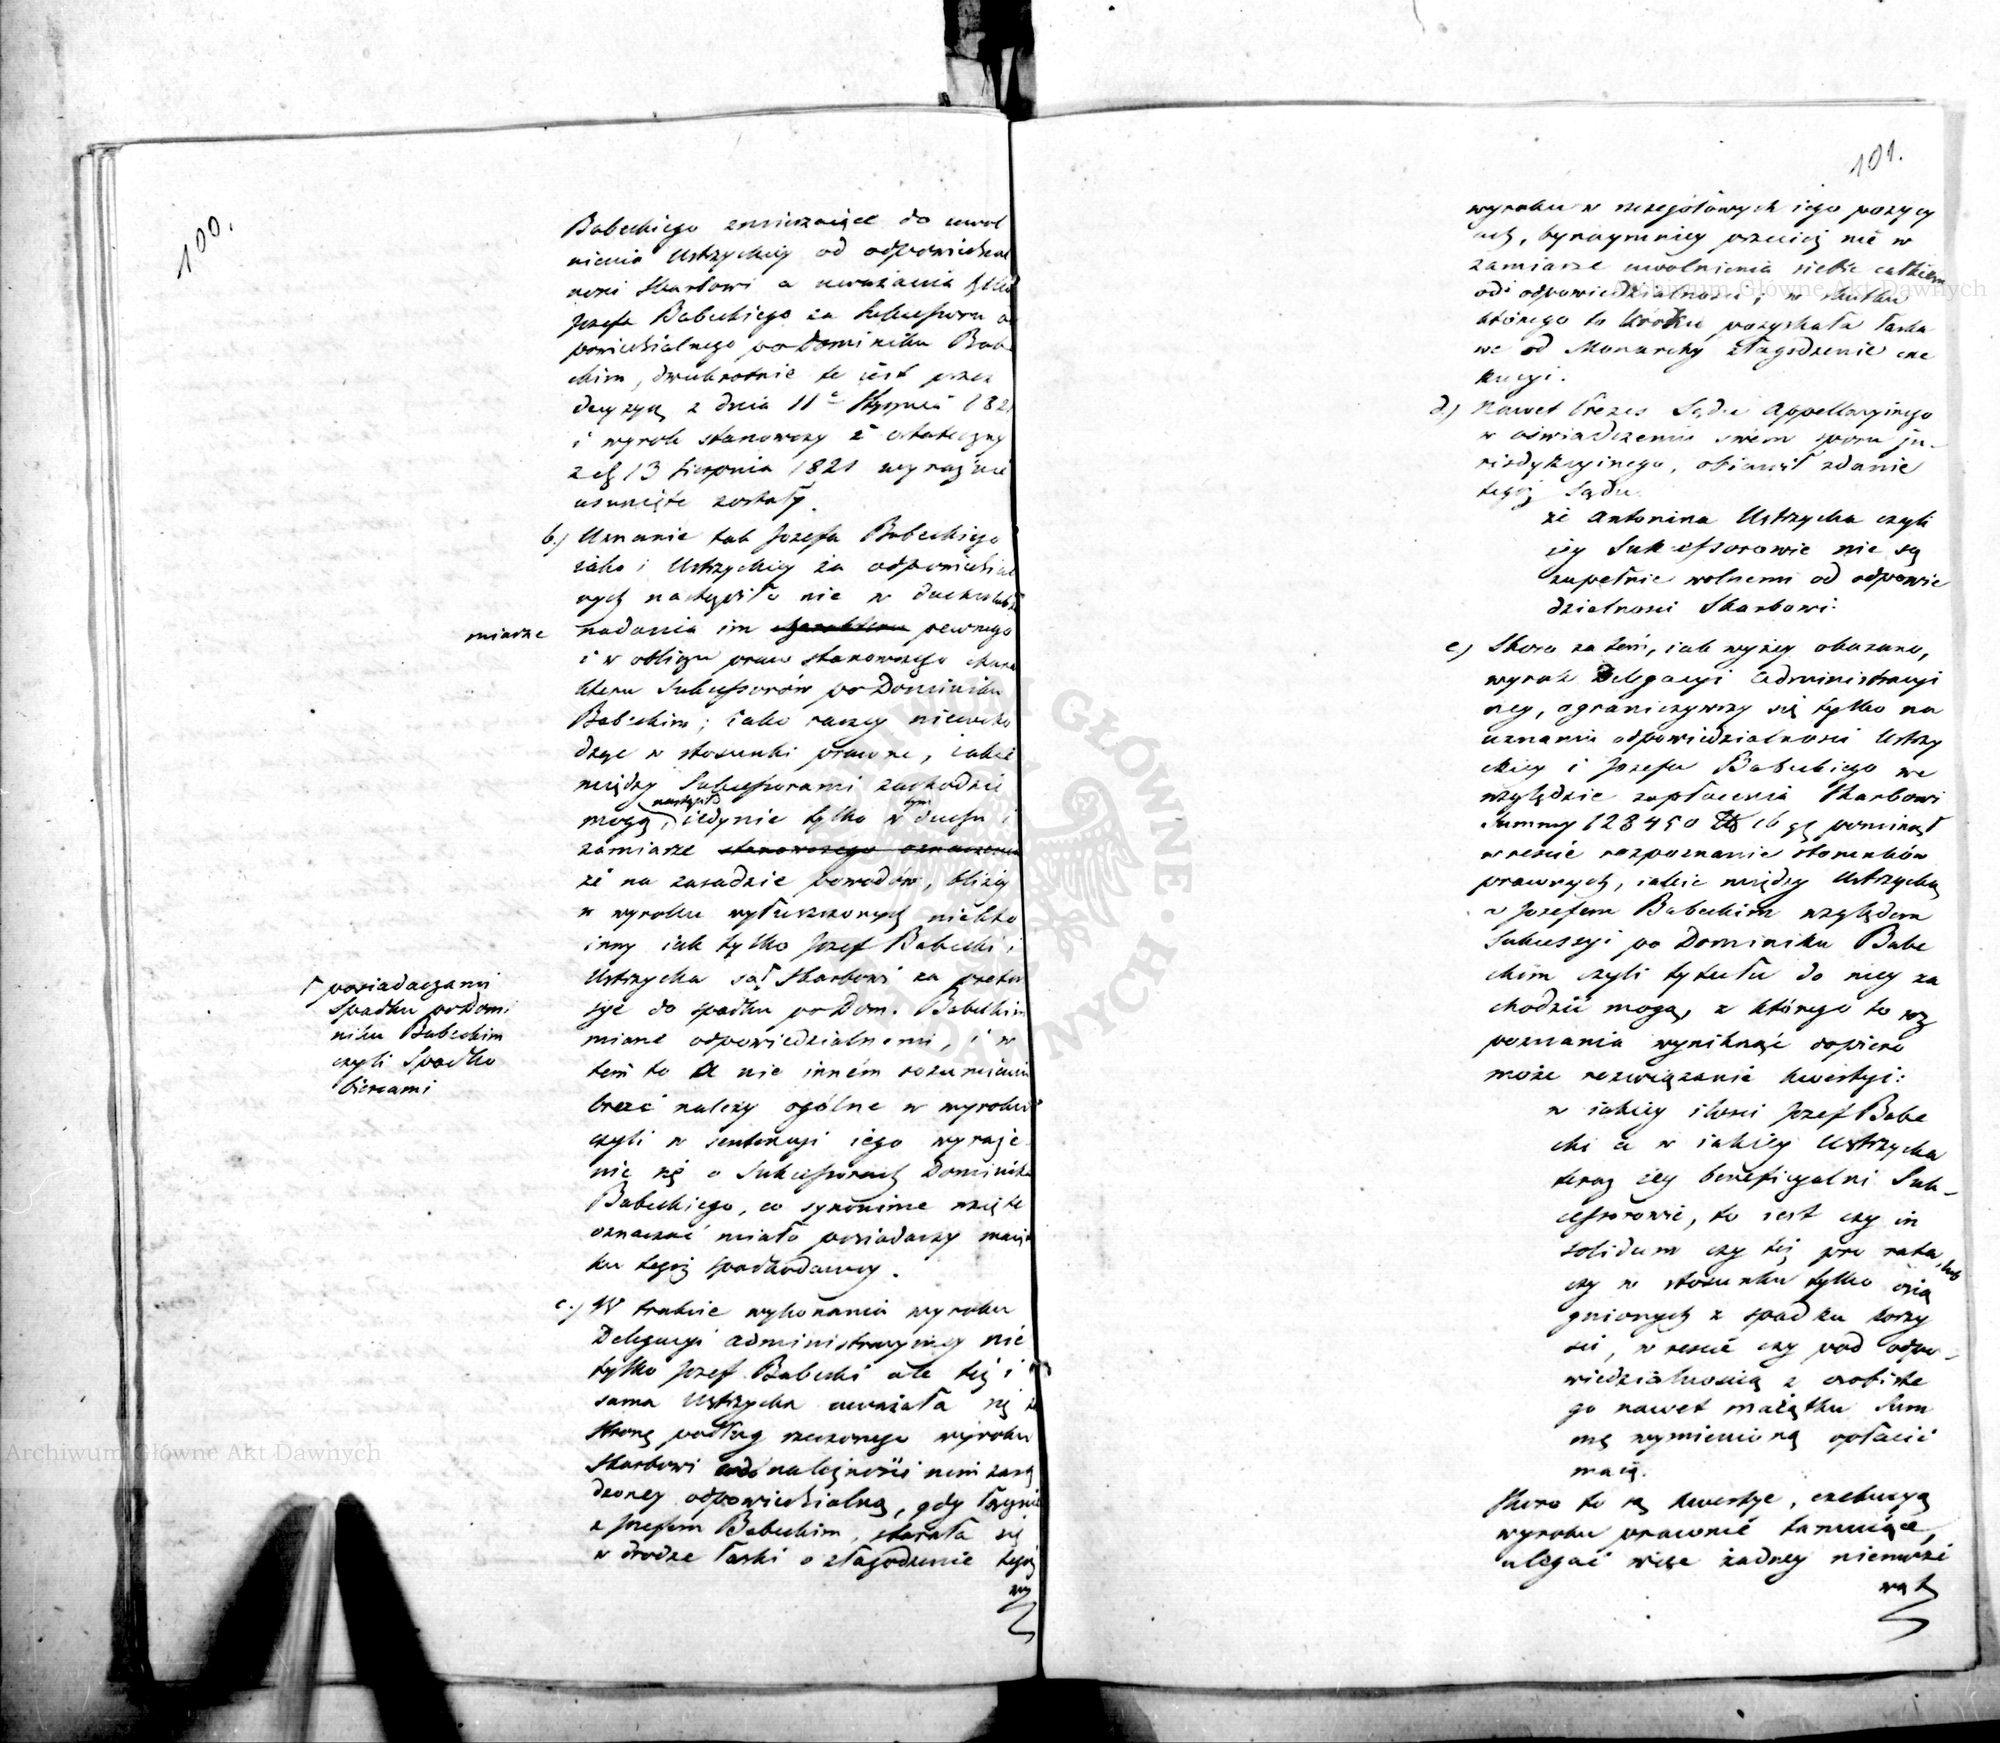 100.
Babeckiego zmierzaiące do uwol
nienia Ustrzyckiey od odpowiedzial
ności Skarbowi a uważania tylko
Jozefa Babeckiego za Sukcessora od
powiedzialnego po Dominiku Babe
ckim, dwukrotnie to iest przez
decyzyą z dnia 11 Stycznia 182
i wyrok stanowczy i ostateczny
z d. 13 Sierpnia 1821 wyraźnie
usunięte zostały.
b.) Uznanie tak Jozefa Babeckiego
iako i Ustrzyckiey za odpowiedzial
nych nastąpiło nie w duchu lub za
miarze nadania im pewnego
i w obliczu prawa stanowczego chara
kteru Sukcessorów po Dominiku
Babeckim; iako raczey niewcho
dząc w stosunki prawne, iakie
między Sukcessorami zachodzić
mogą, nastąpiło iedynie tylko w tym duchu i
zamiarze stanowczego oznaczenia
że na zasadzie powodów, bliżey
w wyroku wyłuszczonych niekto
inny iak tylko Jozef Babecki i
Ustrzycka są Skarbowi za preten
sye do spadku po Dom. Babeckim
miane odpowiedzialnemi, i w
tem to a nie inném rozumieniu
brać należy ogólne w wyroku
czyli w sentencyi iego wyraże
nie się o Sukcessorach Dominika
Babeckiego, co synonime wzięte
oznaczać miało posiadaczy maią
tku tegoż spadkodawcy.
posiadaczami
Spadku po Domi
niku Babeckim
czyli Spadko
biercami
c.) W trakcie wykonania wyroku
Delegacyi administracyiney nie
tylko Jozef Babecki ale też i
sama Ustrzycka uważała się za
stronę podług rzeczonego wyroku
Skarbowi należności nim zasą
dzoney odpowiedzialną, gdy łącznie
z Jozefem Babeckim, starała się
w drodze łaski o złagodzenie tegoż
wy
101.
wyroku w szczegółowych iego pozycy
ach, bynaymniey przecież nie w
zamiarze uwolnienia siebie całkiem
od odpowiedzialności; w skutku
którego to kroku pozyskała łaska
we od Monarchy złagodzenie exe
kucyi.
d.) Nawet Prezes Sądu Appellacyinego
w oświadczeniu swém sporu ju-
risdykcyinego, obiawił zdanie
tegoż Sądu.
że Antonina Ustrzycka czyli
iey Sukcessorowie nie są
zupełnie wolnemi od odpowie
dzialności Skarbowi.
e.) Skoro zatém, iak wyżey okazano,
wyrok Delegacyi administracyi
ney, ograniczywszy się tylko na
uznaniu odpowiedzialności Ustrzy
ckiey i Jozefa Babeckiego we
względzie zapłacenia Skarbowi
Summy 128450 16 gr pominął
wreście rozpoznanie stosunków
prawnych, iakie między Ustrzycką
a Jozefem Babeckim względem
Sukcessyi po Dominiku Babe
ckim czyli tytułu do niey za
chodzić mogą, z którego to roz
poznania wyniknąć dopiero
może rozwiązanie kwestyi:
w iakiey ilości Jozef Babe
cki a w iakiey Ustrzycka
teraz iey beneficyalni Suk-
cessorowie, to iest czy in
solidum czy też pro rata, lub
czy w stosunku tylko osią
gnionych z spadku korzy
ści, wreście czy pod odpo-
wiedzialnością z osobiste
go nawet maiątku Sum
mę wymienioną opłacić
maią.
Skoro te są kwestye, exekucyą
wyroku prawnie tamuiące,
ulegać więc żadney niemoże
wąt